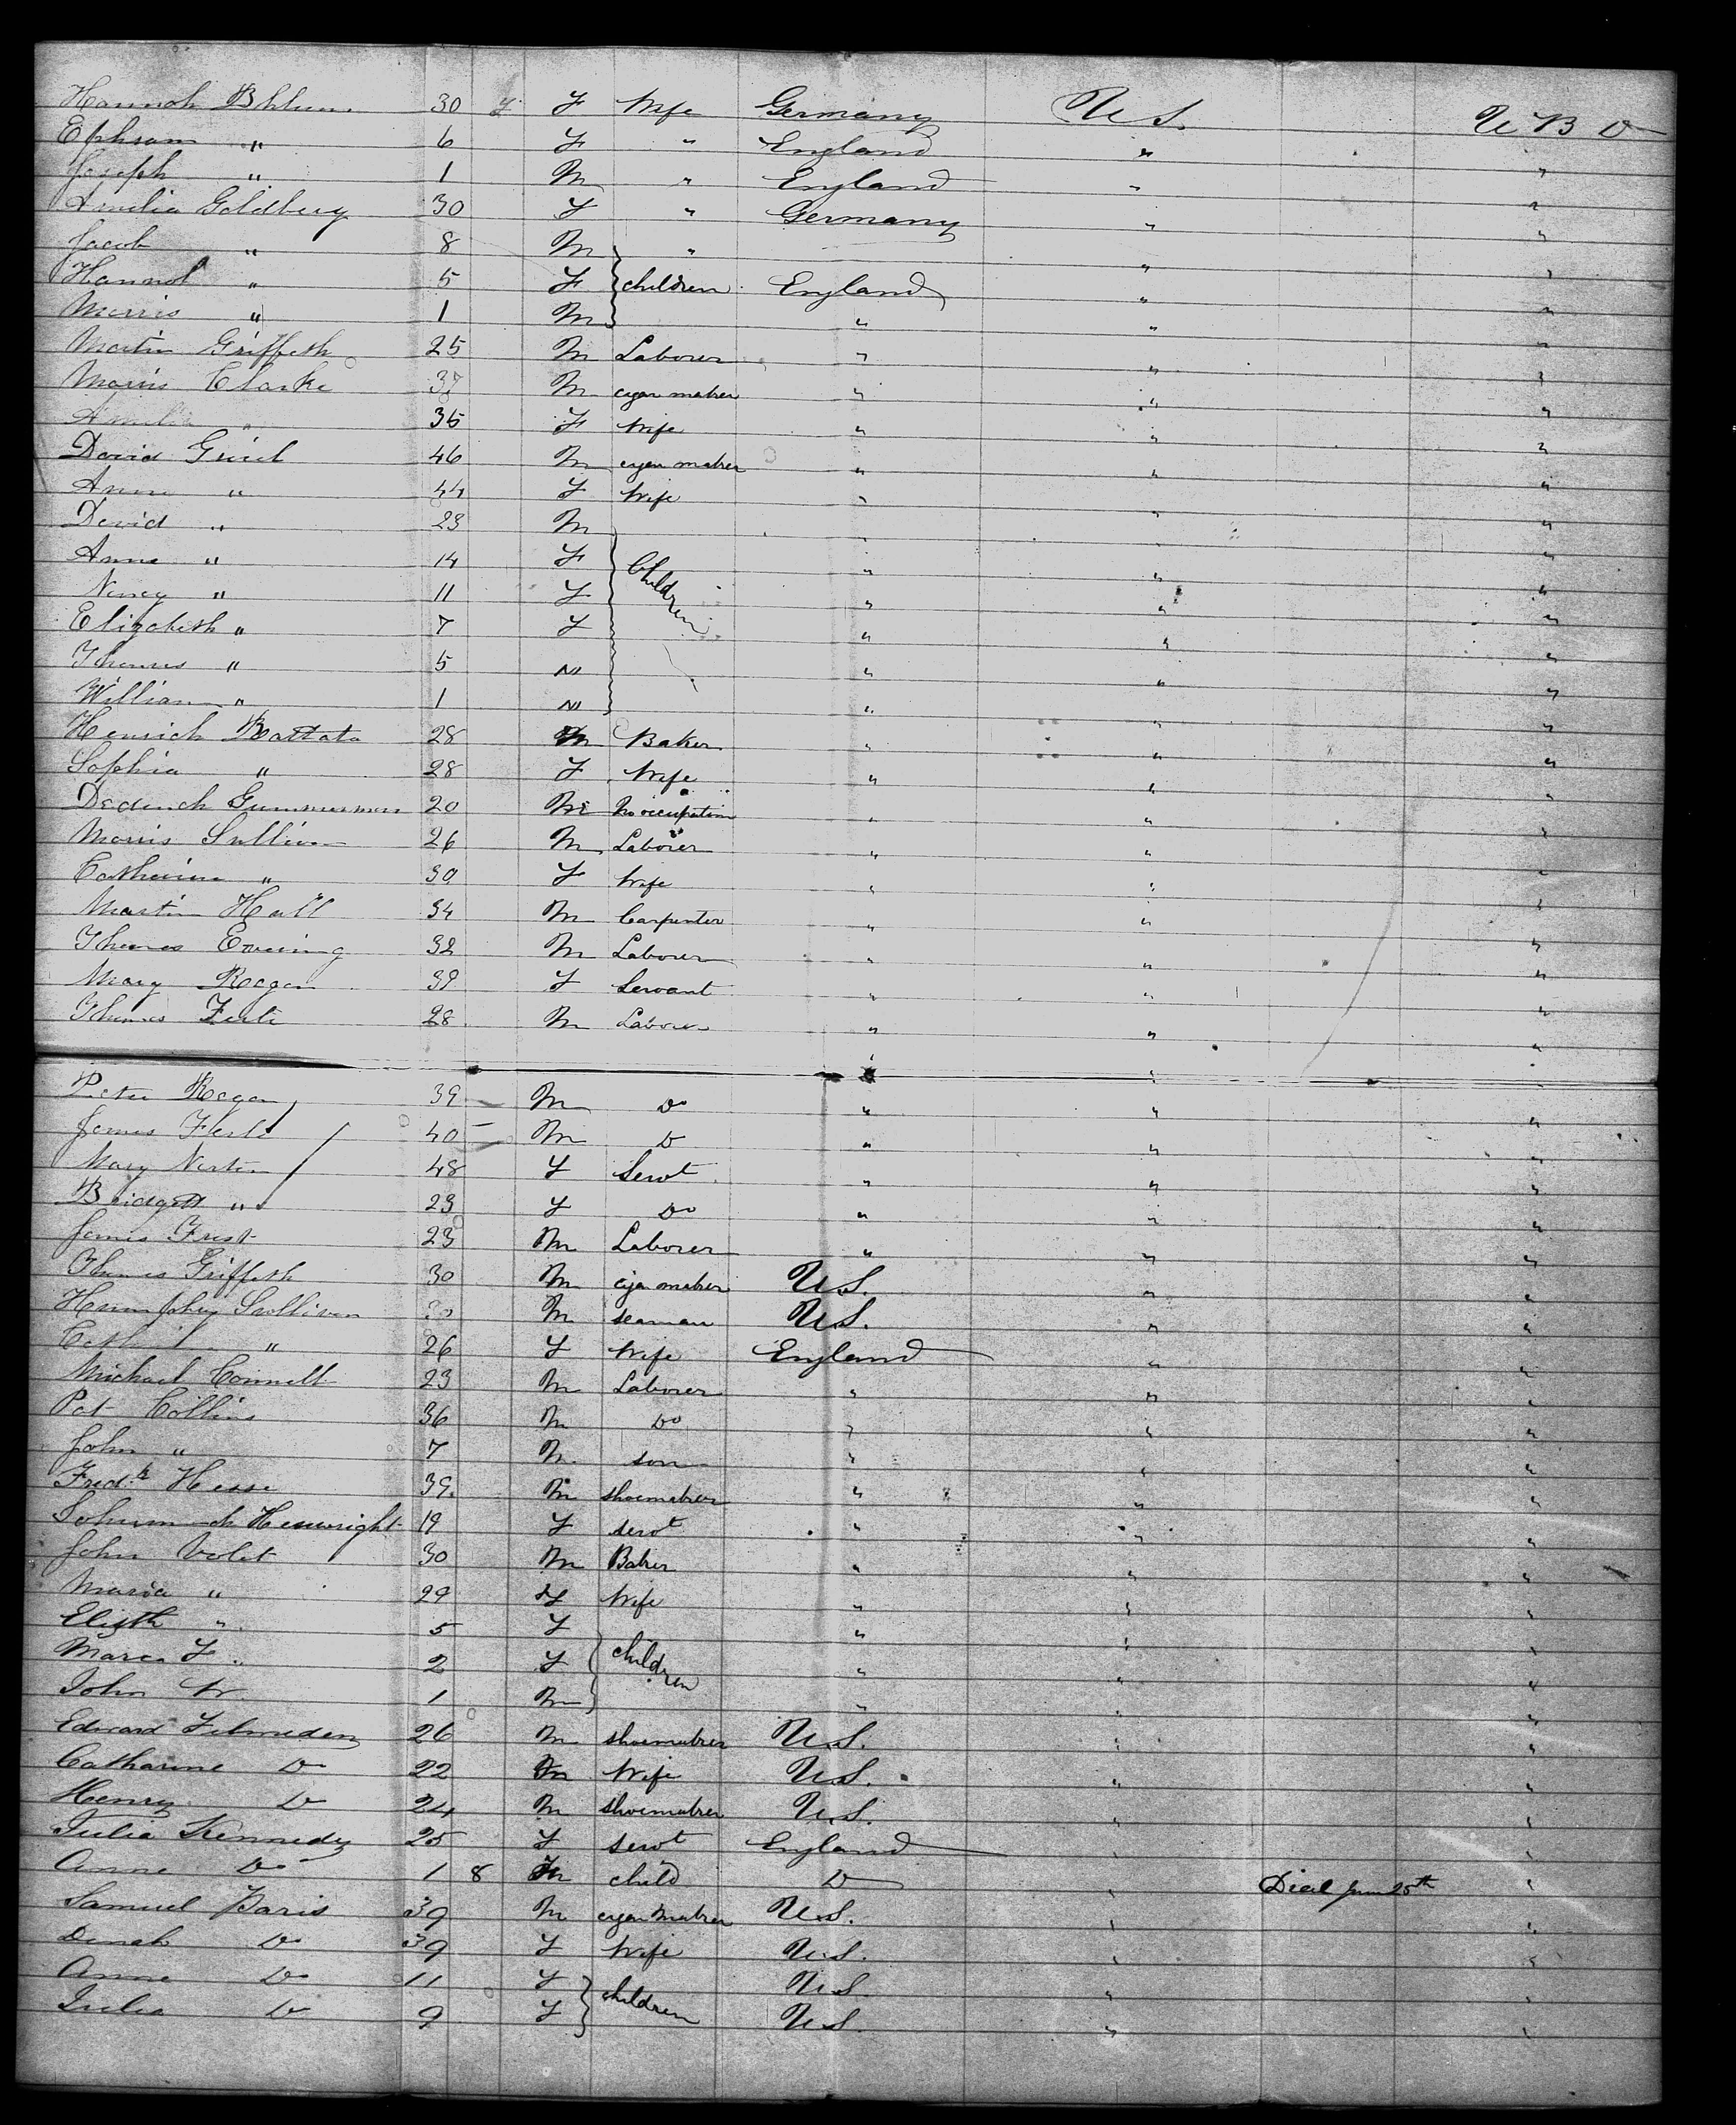 Hannah 30 F Wife Germany U S. U B D
Ephraim " 6 F " England " "
Joseph " 1 M " England " "
Amelia Goldberg 30 F " Germany " "
Jacob " 8 M " " "
Hannah " 5 F children England " "
Morris " 1 M " " "
Martin Griffeth 25 M Laborer " " "
Morris Clarke 37 M cigar maker " " "
Amelia " 35 F Wife " " "
David 46 M cigar maker " " "
Anne " 44 F Wife " " "
David " 23 M " " "
Anne " 14 F Children " " "
Nancy " 11 F " " "
Elizabeth " 7 F " " "
Thomas " 5 M " " "
William " 1 M " " "
Henrich Rattata 28 M Baker " " "
Sophia " 28 F Wife " " "
20 M No occupation " " "
Morris Sullivan 26 M Laborer " " "
Catherine " 30 F Wife " " "
Martin Hall 34 M Carpenter " " "
Thomas 32 M Laborer " " "
Mary Regan 39 F Servant " " "
Thomas 28 M Laborer " " "
Peter Regan 39 M Do " " "
James 40 M Do " " "
Mary 48 F Servt " " "
Bridgett " 23 F Do " " "
James Frost 23 M Laborer " " "
Thomas Griffeth 30 M cigar maker U.S. " "
Humphrey Sullivan M seaman U.S. " "
" 26 F Wife England " "
Michael Connell 23 M Laborer " " "
Pat Collins 36 M Do " " "
John " 7 M son " " "
Fredk Hesse 39 M shoemaker " " "
19 F servt " " "
John Volet 30 M Baker " " "
Maria " 29 F Wife " " "
Elizth " 5 F " " "
Maria F " 2 F children " " "
John W. 1 M " " "
Edward 26 M shoemaker U.S. " "
Catharine Do 22 Wife U.S. " "
Henry Do 24 M shoemaker U.S. " "
Julia Kennedy 25 F servt England " "
Anne Do 1 8 child Do " Died June 25th "
Samuel Paris 39 M cigar maker U.S. " "
Dinah Do 39 F Wife U.S. " "
Anne Do 11 F children U.S. " "
Julia Do 9 F U.S. " "